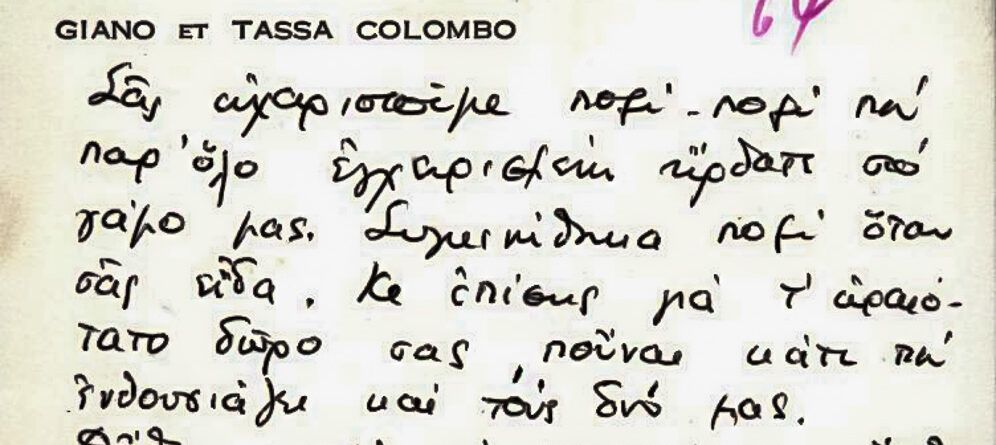 GIANO ET TASSA COLOMBO
Σᾶς εὐχαριστοῦμε πολύ-πολύ ποὺ
παρ' ὅλο ἐγχειρισμένη ἤρθατε στό
γάμο μας. Συγκινήθηκα πολύ ὅταν
σᾶς εἶδα. Κε ἐπίσης γιά τ' ὡραιό-
τατο δῶρο σας, ποὖναι κάτι πού
ἐνθουσιάζει καί τούς δυό μας.